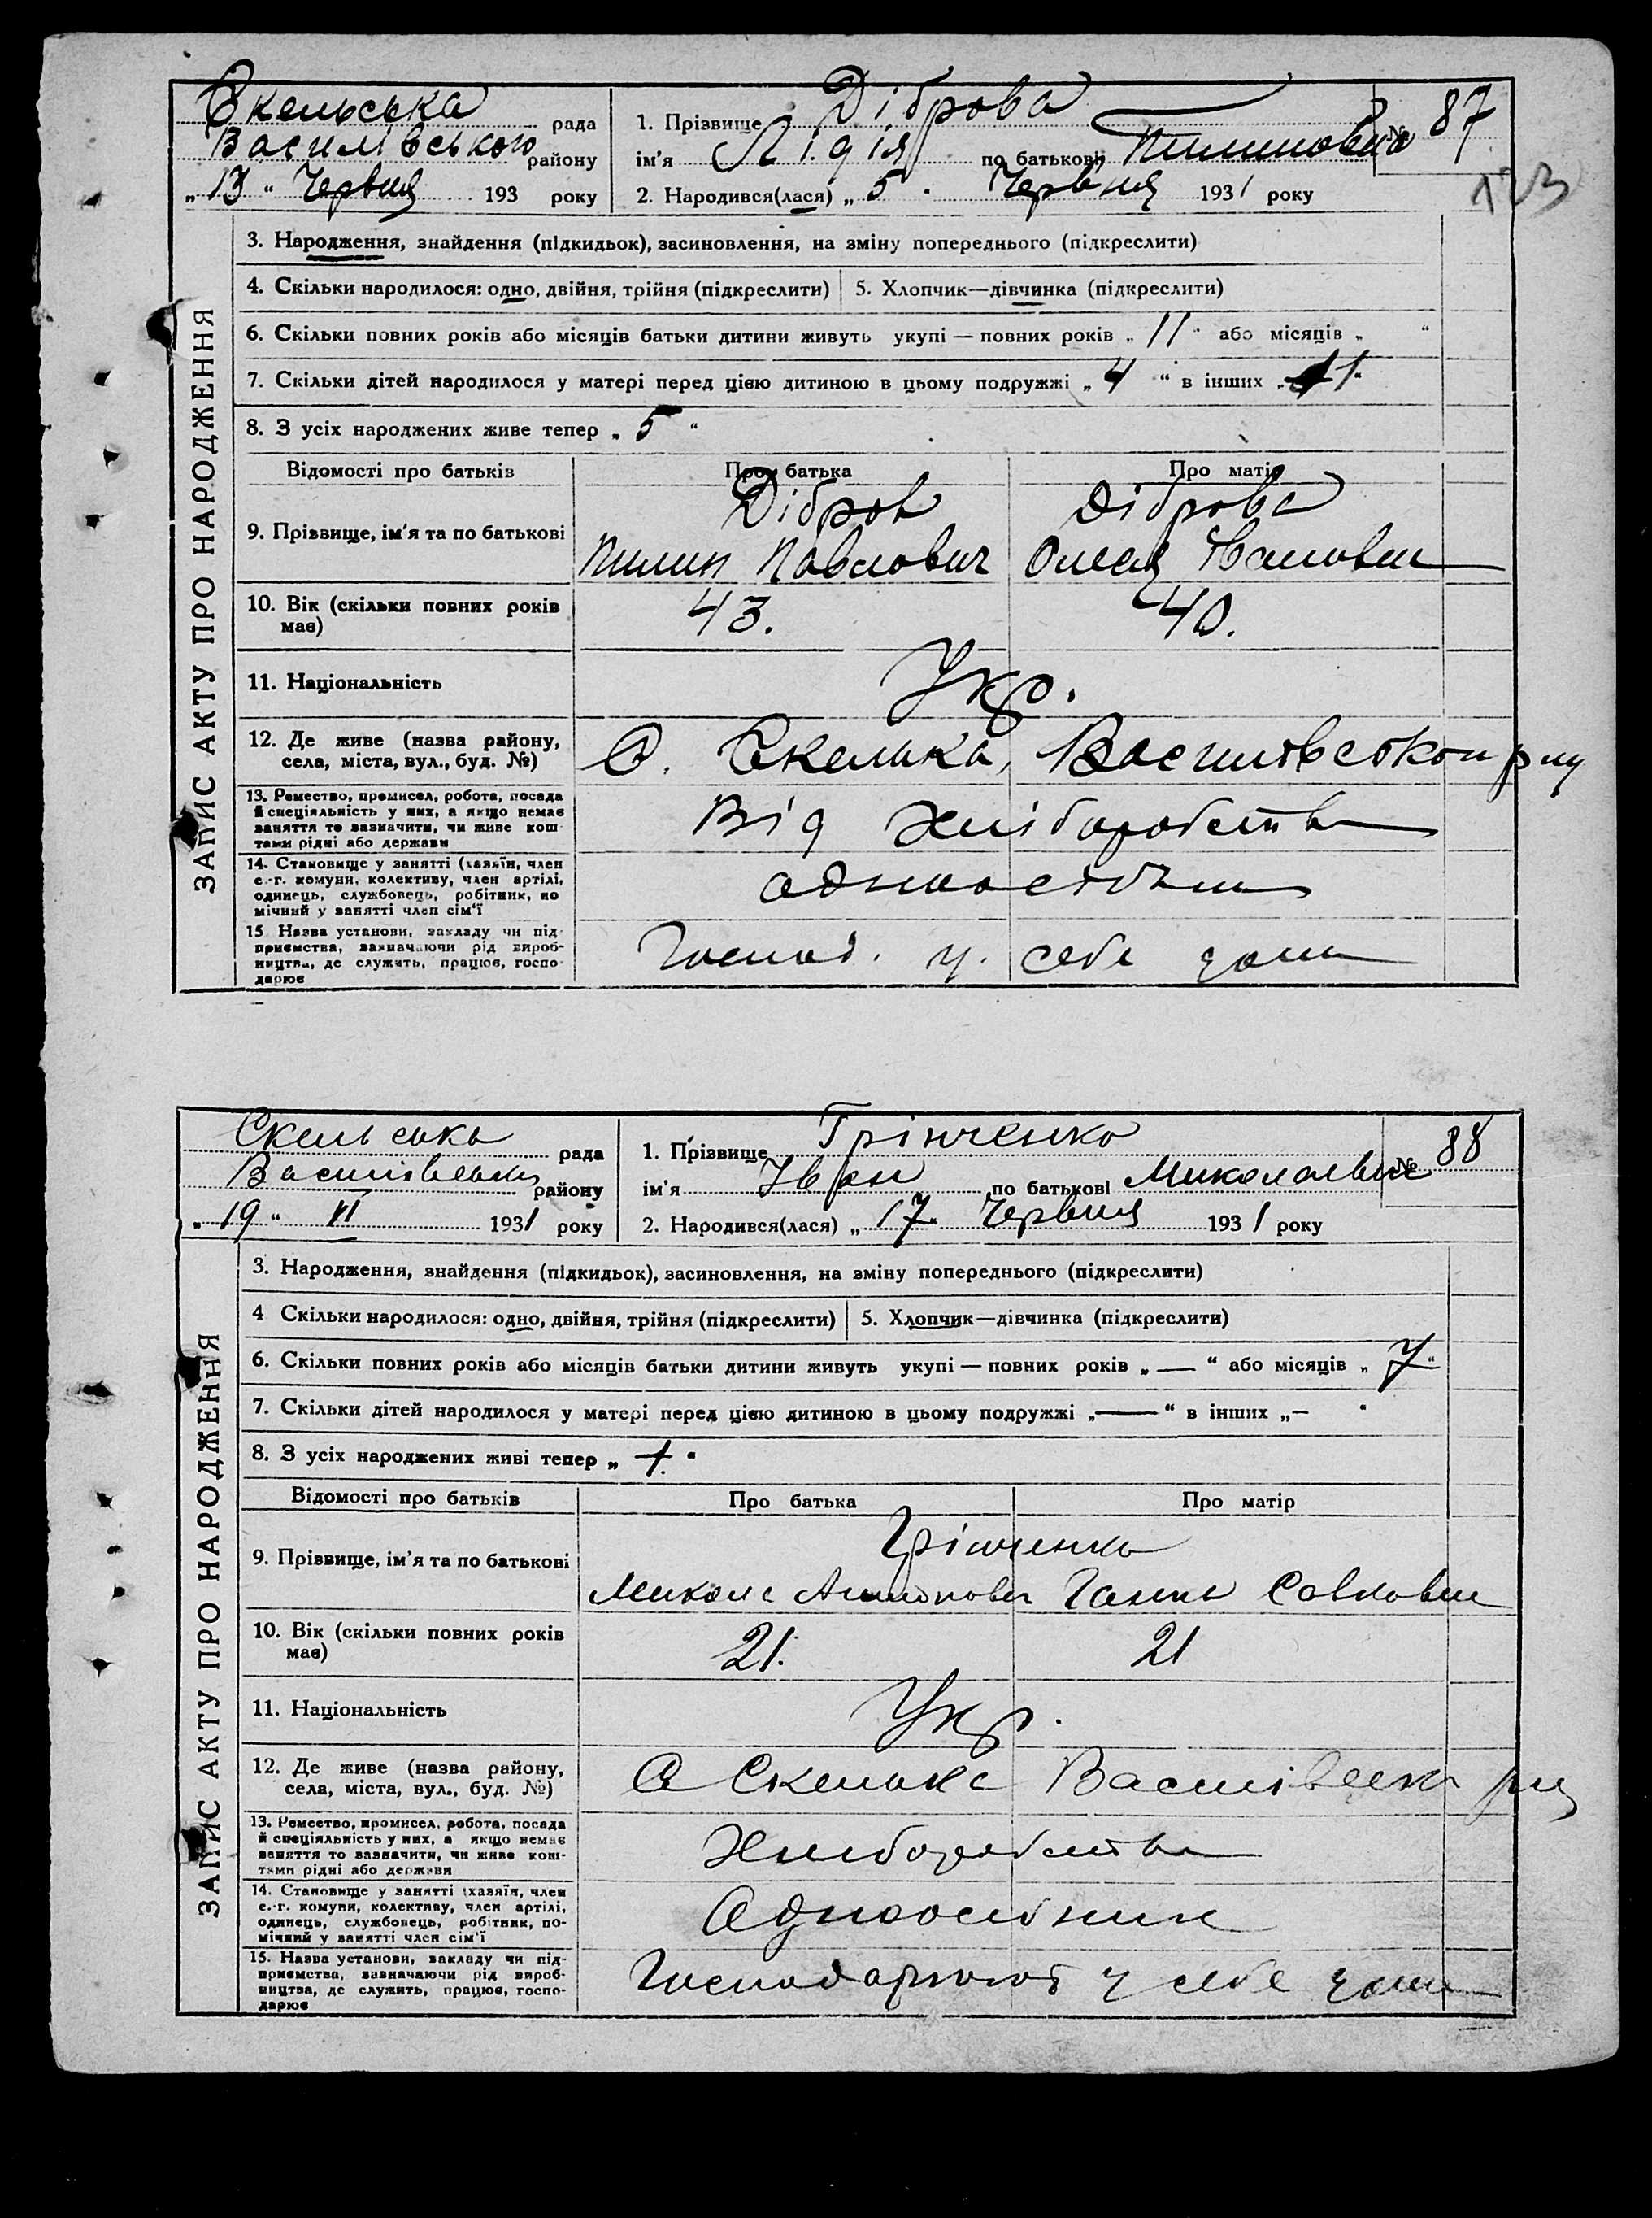 Скельська рада
Василівського району
„13“ Червня 193 року
1. Прізвище Діброва
ім'я Лідія по батькові Пилиповна
№ 87
2. Народився(лася) „5. Червня 1931 року
123
ЗАПИС АКТУ ПРО НАРОДЖЕННЯ
3. Народження, знайдення (підкидьок), засиновлення, на зміну попереднього (підкреслити)
4. Скільки народилося: одно, двійня, трійня (підкреслити) 5. Хлопчик—дівчинка (підкреслити)
6. Скільки повних років або місяців батьки дитини живуть укупі — повних років „11“ або місяців „ “
7. Скільки дітей народилося у матері перед цією дитиною в цьому подружжі „4“ в інших „1“
8. З усіх народжених живе тепер „5“
Відомості про батьків Про батька Про матір
9. Прізвище, ім'я та по батькові
Дібров Діброва
Пилип Павлович Олена
10. Вік (скільки повних років має) 43. 40.
11. Національність Укр.
12. Де живе (назва району, села, міста, вул., буд. №) С. Скелька, Василівського р-ну
13. Ремество, промисел, робота, посада
й спеціяльність у них, а якщо немає
заняття то зазначити, чи живе кош-
тами рідні або держави
Від хліборобства
14. Становище у занятті (хазяїн, член
с.-г. комуни, колективу, член артілі,
одинець, службовець, робітник, по
мічний у занятті член сім'ї
15 Назва установи, закладу чи під-
приємства, зазначаючи рід вироб-
ництва, де служить, працює, госпо-
дарює
Господ. у себе дома
Скельська рада
Василівськ району
„19“ VI 1931 року
1. Прізвище Грінченко
ім'я Іван по батькові Миколаевич
№ 88
2. Народився(лася) „17. Червня 1931 року
ЗАПИС АКТУ ПРО НАРОДЖЕННЯ
3. Народження, знайдення (підкидьок), засиновлення, на зміну попереднього (підкреслити)
4 Скільки народилося: одно, двійня, трійня (підкреслити) 5. Хлопчик—дівчинка (підкреслити)
6. Скільки повних років або місяців батьки дитини живуть укупі — повних років „—“ або місяців „7“
7. Скільки дітей народилося у матері перед цією дитиною в цьому подружжі „—“ в інших „—
8. З усіх народжених живі тепер „1.“
Відомості про батьків Про батька Про матір
9. Прізвище, ім'я та по батькові
Грінченко
Микола Ганна Савловна
10. Вік (скільки повних років має) 21. 21
11. Національність Укр.
12. Де живе (назва району, села, міста, вул., буд. №) С Скелька Василівськ р-ну
13. Ремество, промисел, робота, посада
й спеціяльність у них, а якщо немає
заняття то зазначити, чи живе кош-
тами рідні або держави
Хліборобства
14. Становище у занятті (хазяїн, член
с.-г. комуни, колективу, член артілі,
одинець, службовець, робітник, по-
мічний у занятті член сім'ї
Одноосібник
15. Назва установи, закладу чи під-
приємства, зазначаючи рід вироб-
ництва, де служить, працює, госпо-
дарює
Господарюют у себе дома